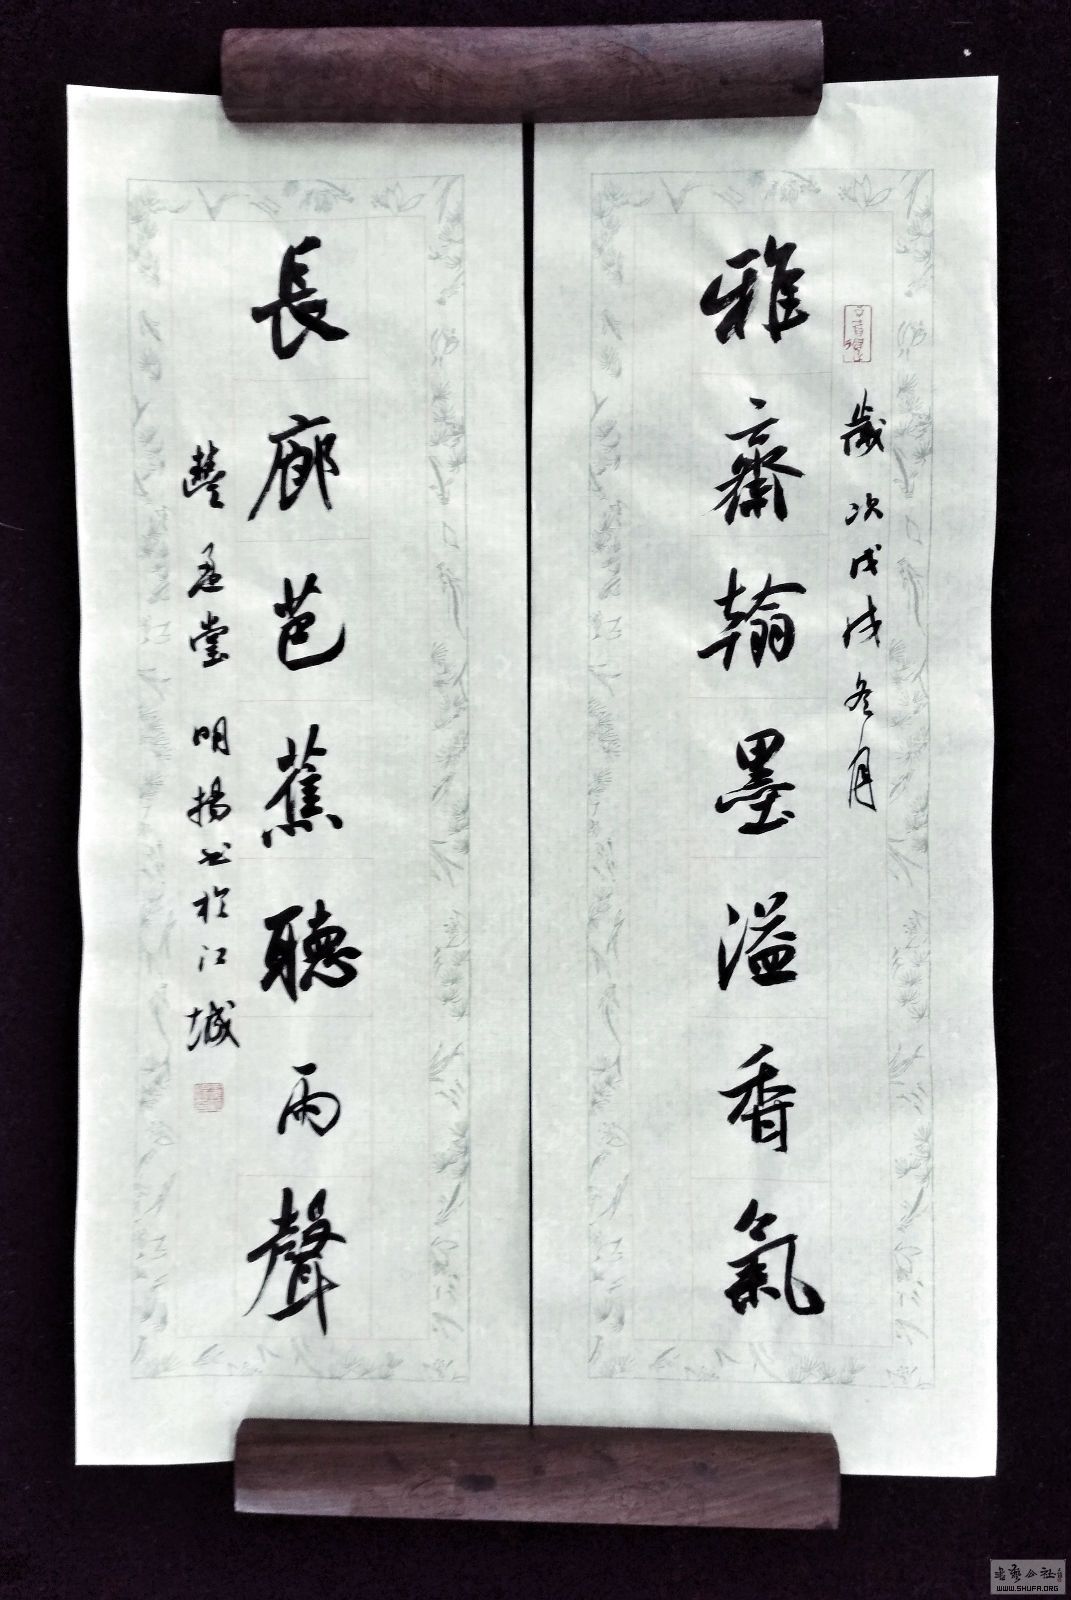 歲次戊戌冬月
雅齋翰墨溢香氣
長廊芭蕉聽雨聲
堂 明揚书於江城
书艺公社
WWW.SHUFA.ORG